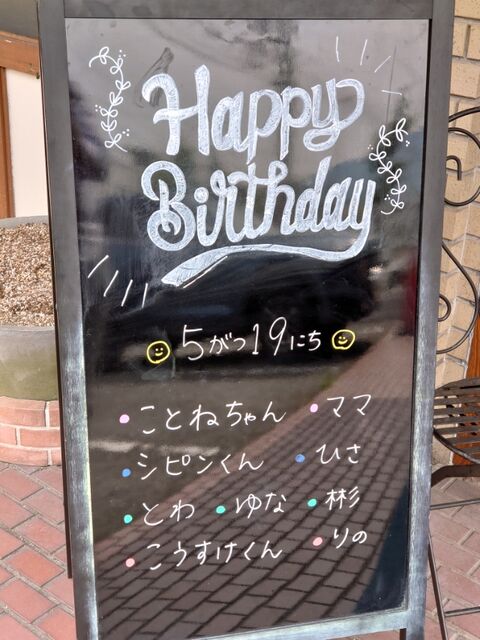 Happy
Birthday
5がつ19にち
ことねちゃん ママ
シピンくん ひさ
とわ ゆな 彬
こうすけくん りの